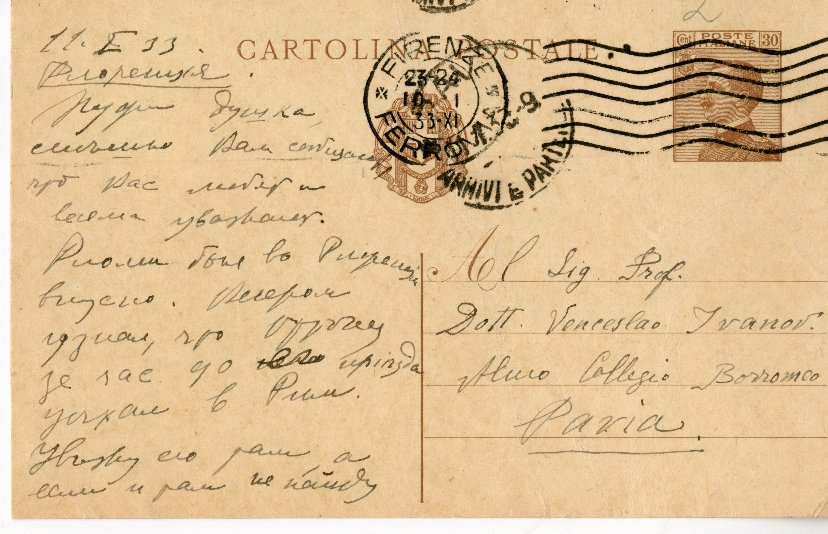 CARTOLINA POSTALE
POSTE
ITALIANE
Cent 30
FIRENZE
23-24
10 I
33-XI
FERROVIA
ARRIVI E PARTENZE
11. I 33.
Флоренция.
душка,
Вам сообщаю,
что Вас любят и
весьма уважают.
было во Флоренции
вкусно. Вечером
узнал, что
за час до приезда
уехал в Рим.
Увижу его там, а
если и там не найду
Al Sig. Prof.
Dott. Venceslao Ivanov.
Almo Collegio Borromeo
Pavia.